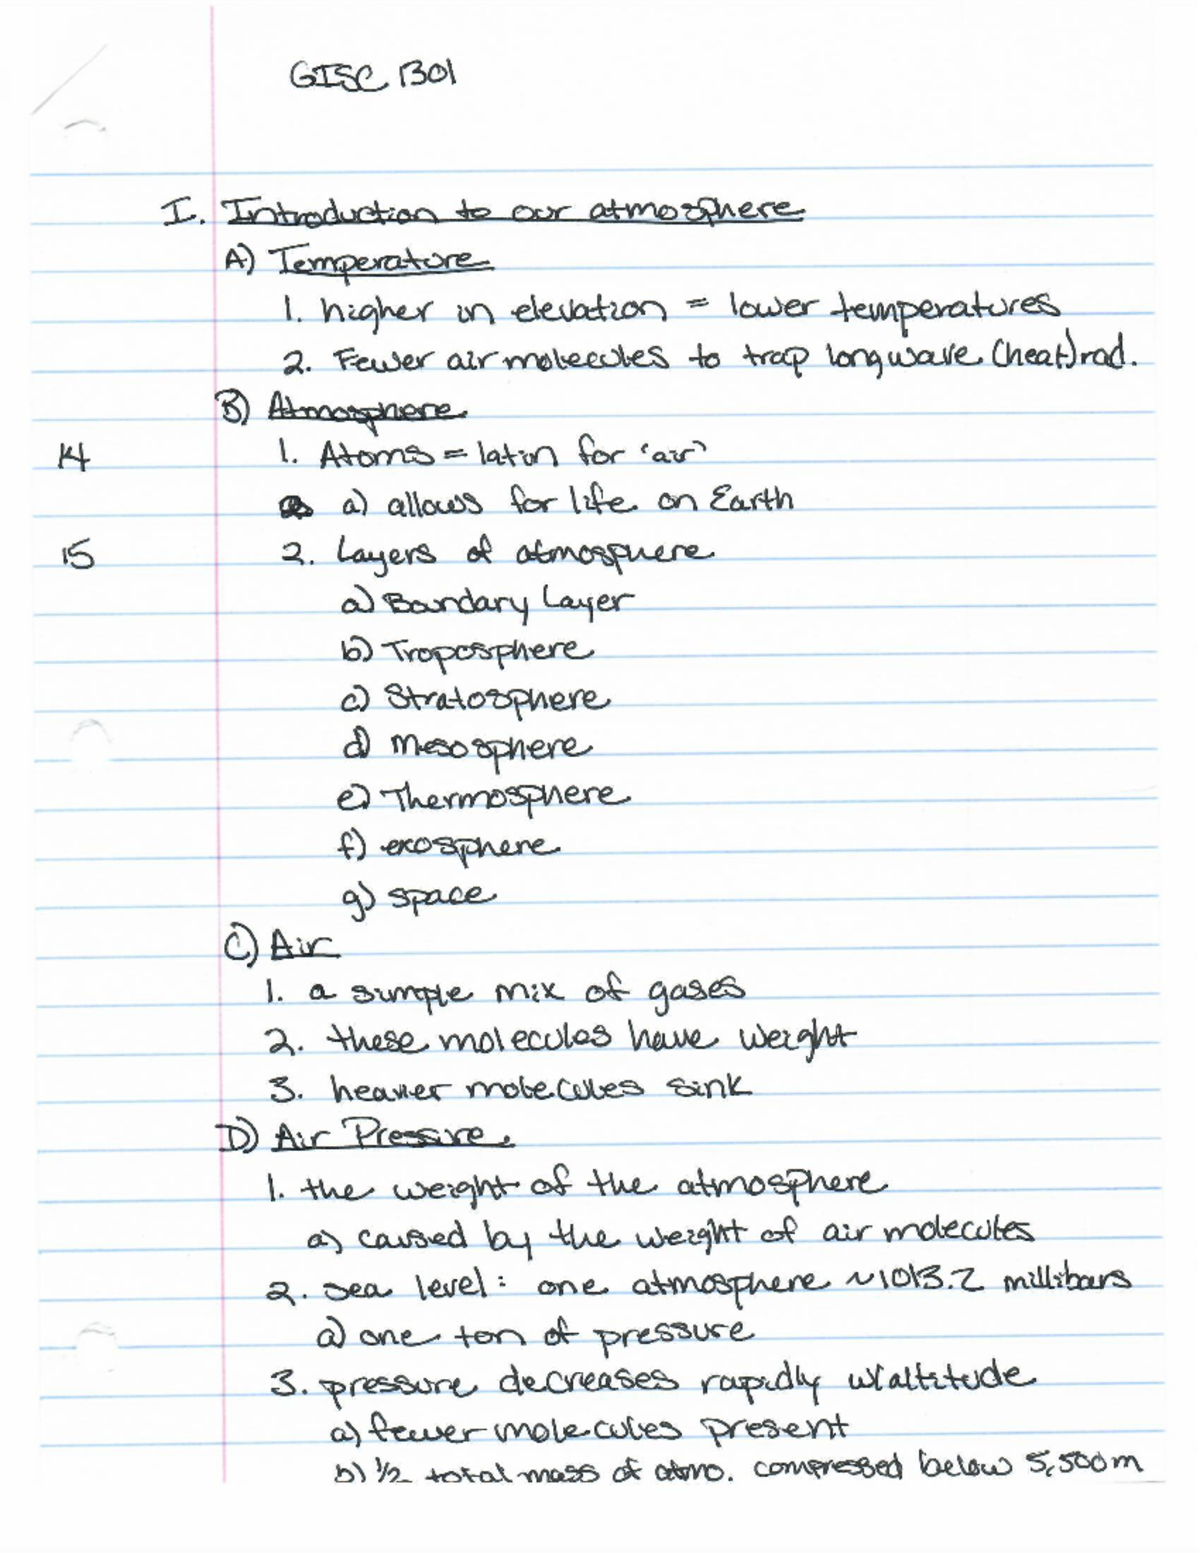 GISC 1301
I. Introduction to our atmosphere
A) Temperature
1. higher in elevation = lower temperatures
2. Fewer air molecules to trap longwave (heat) rad.
B) Atmosphere
14 1. Atoms = latin for 'air'
a) allows for life on Earth
15 2. Layers of atmosphere
a) Boundary Layer
b) Troposphere
c) Stratosphere
d) Mesosphere
e) Thermosphere
f) exosphere
g) space
C) Air
1. a simple mix of gases
2. these molecules have weight
3. heavier molecules sink
D) Air Pressure
1. the weight of the atmosphere
a) caused by the weight of air molecules
2. sea level: one atmosphere ~1013.2 millibars
a) one ton of pressure
3. pressure decreases rapidly w/altitude
a) fewer molecules present
b) 1/2 total mass of atmo. compressed below 5,500m